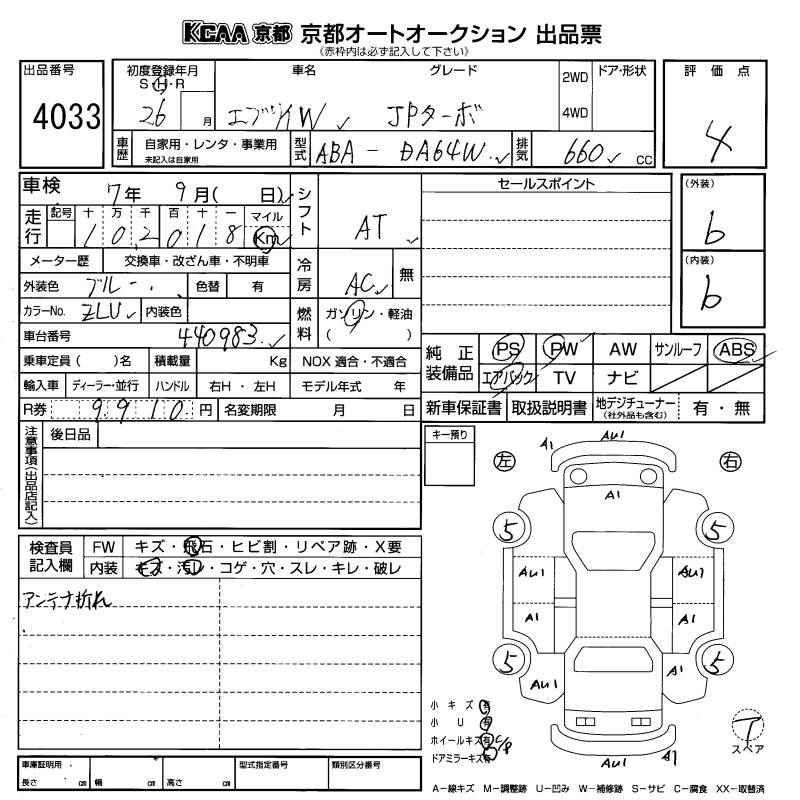 KCAA 京都 京都オートオークション 出品票
《赤枠内は必ず記入して下さい》
出品番号 4033
初度登録年月 S・H・R 26 月
車名 エブリイW グレード JPターボ
2WD 4WD ドア・形状
評価点 4
車歴 自家用・レンタ・事業用 未記入は自家用
型式 ABA-DA64W
排気 660 cc
車検 7年 9月( 日)
走行 記号 十 万 千 百 十 一 マイル Km
102018
シフト AT
セールスポイント
(外装) b
(内装) b
メーター歴 交換車・改ざん車・不明車
冷房 AC 無
外装色 ブルー 色替 有
カラーNo. ZLU 内装色
燃料 ガソリン・軽油 ( )
車台番号 440983
純正装備品 PS PW AW サンルーフ ABS
エアバック TV ナビ
乗車定員( )名 積載量 Kg NOX 適合・不適合
輸入車 ディーラー・並行 ハンドル 右H・左H モデル年式 年
R券 9910円 名変期限 月 日
新車保証書 取扱説明書 地デジチューナー (社外品も含む) 有・無
注意事項(出品店記入) 後日品
キー預り
左 右
A1 AU1
A1
5 5
AU1 AU1
A1 A1
5 5
AU1 A1
AU1 A1
検査員記入欄 FW キズ・飛石・ヒビ割・リペア跡・X要
内装 キズ・汚レ・コゲ・穴・スレ・キレ・破レ
アンテナ折れ
小キズ 有
小U 有
ホイールキズ 有 C/P
ドアミラーキズ 有
T スペア
車庫証明用 長さ cm 幅 cm 高さ cm 型式指定番号 類別区分番号
A-線キズ M-調整跡 U-凹み W-補修跡 S-サビ C-腐食 XX-取替済